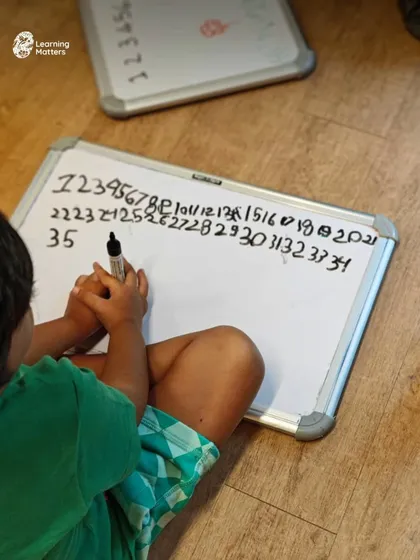 Learning
Matters
1 2 3 4 5 6
1 2 3 4 5 6 7 8 9 10 11 12 13 15 16 17 18 19 20 21
22 23 24 25 26 27 28 29 30 31 32 33 34
35